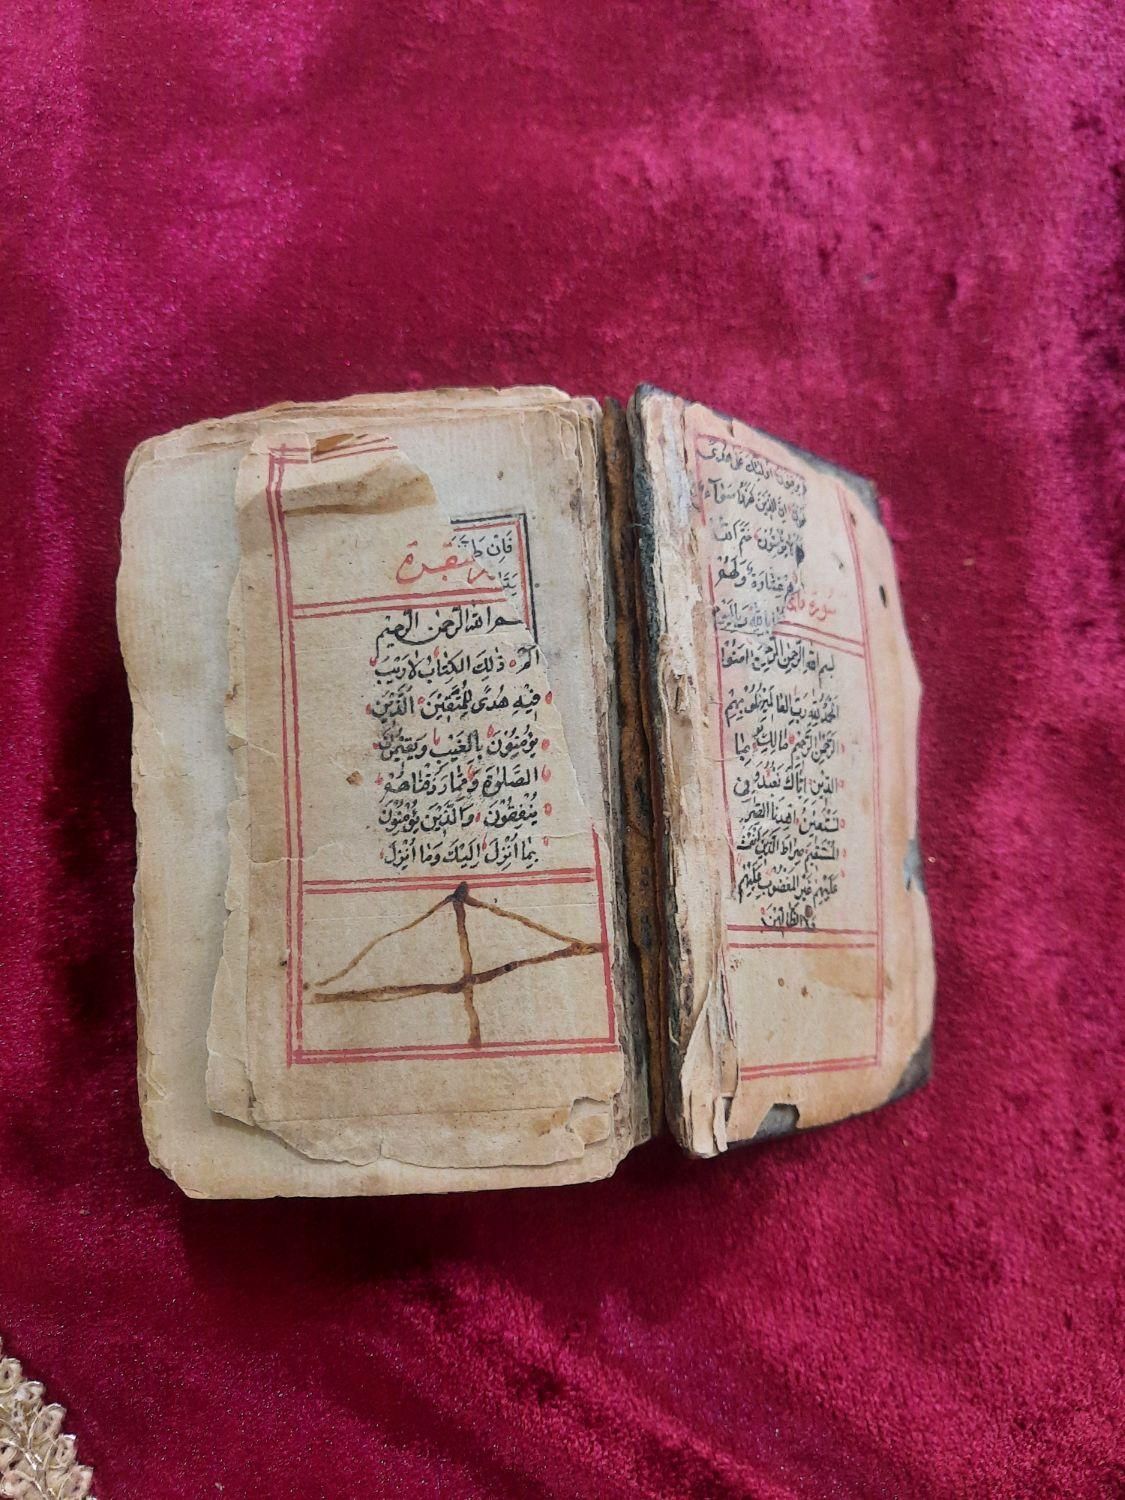 يوقنون اولئك على هدى
ان الذين كفروا سواء
لا يؤمنون ختم الله
غشاوة ولهم
سورة فاتحة
بسم الله الرحمن الرحيم امنوا
الحمد لله رب العالمين
الرَّحْمٰنِ الرَّحِيمِ مَالِكِ
الدِّيْنِ اِيَّاكَ نَعْبُدُ وَ
نَسْتَعِيْنُ اِهْدِنَا الصِّرَ
الْمُسْتَقِيْمَ صِرَاطَ الَّذِيْنَ اَنْعَمْتَ
عَلَيْهِمْ غَيْرِ الْمَغْضُوْبِ عَلَيْهِمْ
وَلَا الضَّالِّيْنَ
فَاِنْ
بقرة
ـم الله الرَّحْمٰنِ الرَّحِيْمِ
الٓمٓ ذٰلِكَ الْكِتَابُ لَا رَيْبَ
فِيْهِ هُدًى لِلْمُتَّقِيْنَ الَّذِيْنَ
يُؤْمِنُوْنَ بِالْغَيْبِ وَيُقِيْمُوْنَ
الصَّلٰوةَ وَمِمَّا رَزَقْنَاهُمْ
يُنْفِقُوْنَ وَالَّذِيْنَ يُؤْمِنُوْنَ
بِمَا اُنْزِلَ اِلَيْكَ وَمَا اُنْزِلَ